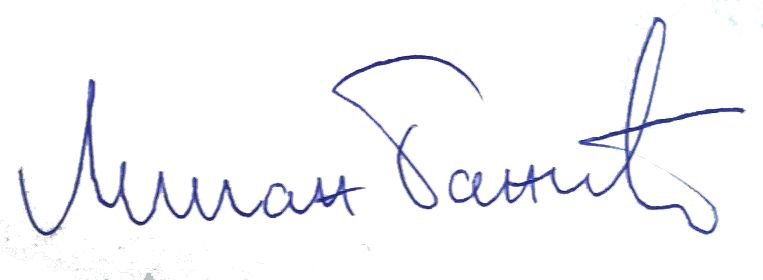 Милан Банић